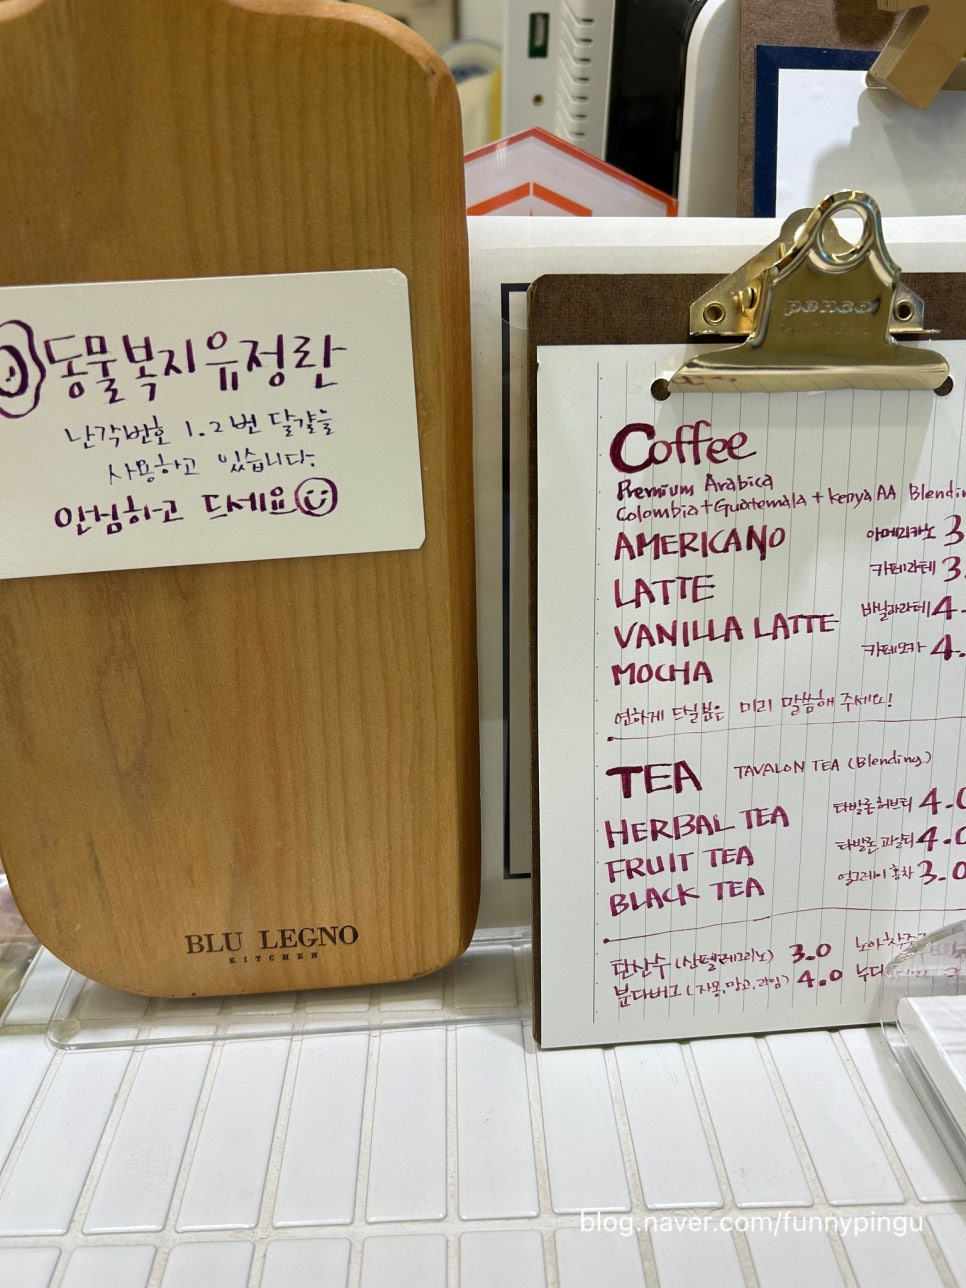 동물복지유정란
난각번호 1.2번 달걀을
사용하고 있습니다.
안심하고 드세요
BLU LEGNO
KITCHEN
penco
Coffee
Premium Arabica
Colombia+Guatemala + Kenya AA
AMERICANO 아메리카노 3.
LATTE 카페라떼 3.
VANILLA LATTE 바닐라라떼 4.
MOCHA 카페모카 4.
연하게 드실분은 미리 말씀해 주세요!
TEA TAVALON TEA (Blending)
HERBAL TEA 타발론허브티 4.0
FRUIT TEA 타발론 과일티 4.0
BLACK TEA 얼그레이 홍차 3.0
탄산수 (산펠레그리노) 3.0
분다버그 (자몽,망고,라임) 4.0
blog.naver.com/funnypingu